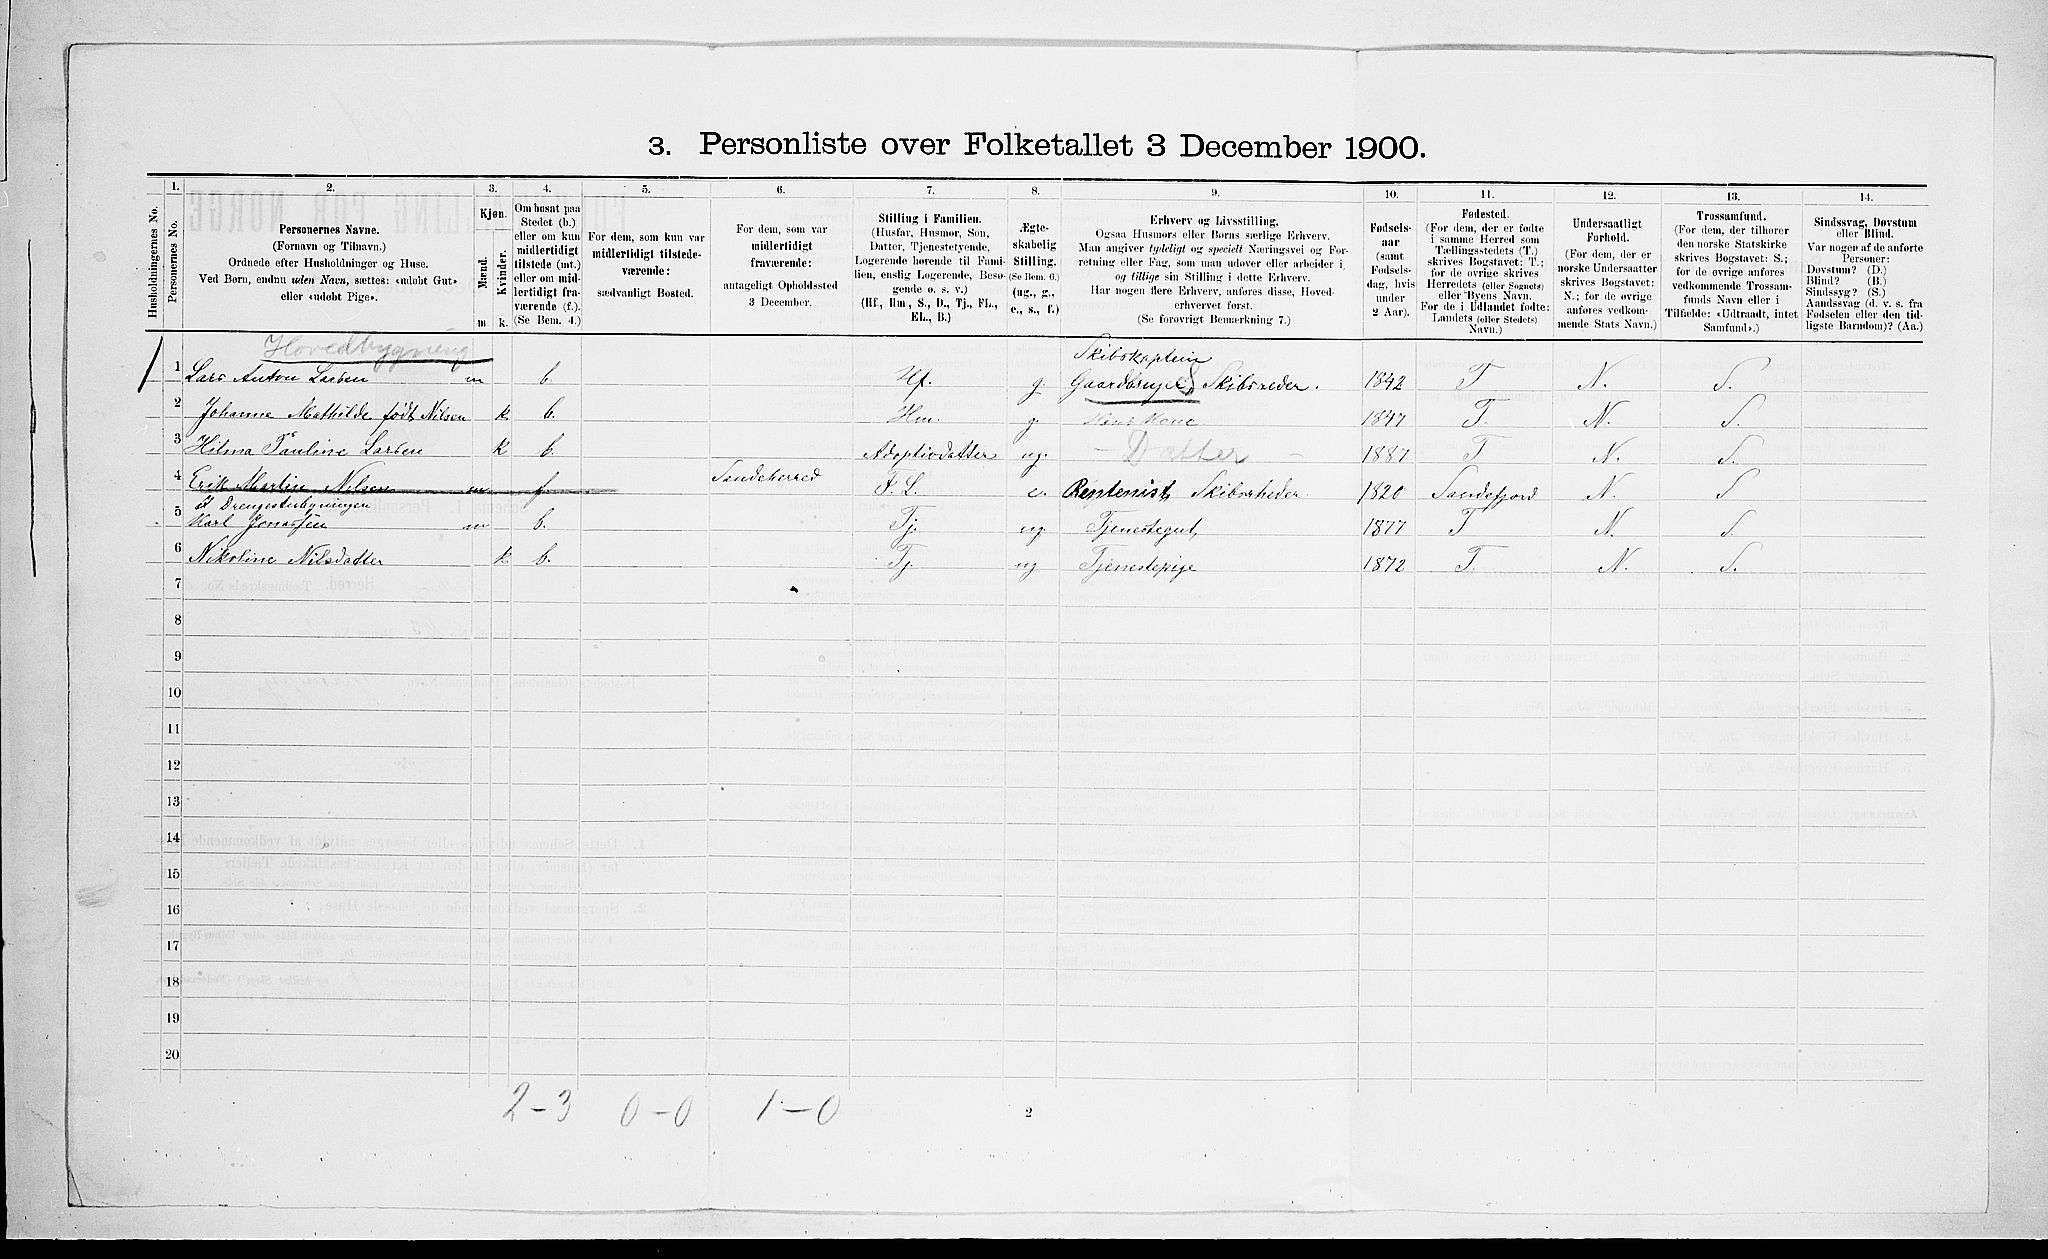 3. Personliste over Folketallet 3 December 1900.
1. 2. 3. 4. 5. 6. 7. 8. 9. 10. 11. 12. 13. 14.
Husholdningernes No.
Personernes No.
Personernes Navne.
(Fornavn og Tilnavn.)
Ordnede efter Husholdninger og Huse.
Ved Børn, endnu uden Navn, sættes: «udøbt Gut»
eller «udøbt Pige».
Kjøn.
Mænd.
Kvinder.
m. k.
Om bosat paa
Stedet (b.)
eller om kun
midlertidigt
tilstede (mt.)
eller om mid-
lertidigt fra-
værende (f.).
(Se Bem. 4.)
For dem, som kun var
midlertidigt tilstede-
værende:
sædvanligt Bosted.
For dem, som var
midlertidigt
fraværende:
antageligt Opholdssted
3 December.
Stilling i Familien.
(Husfar, Husmor, Søn,
Datter, Tjenestetyende,
Logerende hørende til Fami-
lien, enslig Logerende, Besø-
gende o. s. v.)
(Hf., Hm., S., D., Tj., FL.,
EL., B.)
Ægte-
skabelig
Stilling.
(Se Bem. 6.)
(ug., g.,
e., s., f.)
Erhverv og Livsstilling.
Ogsaa Husmors eller Børns særlige Erhverv.
Man angiver tydeligt og specielt Næringsvei og For-
retning eller Fag, som man udøver eller arbeider i,
og tillige sin Stilling i dette Erhverv.
Har nogen flere Erhverv, anføres disse, Hoved-
erhvervet først.
(Se forøvrigt Bemærkning 7.)
Fødsels-
aar
(samt
Fødsels-
dag, hvis
under
2 Aar).
Fødested.
(For dem, der er fødte
i samme Herred som
Tællingsstedets (T.)
skrives Bogstavet: T.;
for de øvrige skrives
Herredets (eller Sognets)
eller Byens Navn.
For de i Udlandet fødte:
Landets (eller Stedets)
Navn.)
Undersaatligt
Forhold.
(For dem, der er
norske Undersaatter
skrives Bogstavet:
N.; for de øvrige
anføres vedkom-
mende Stats Navn.)
Trossamfund.
(For dem, der tilhører
den norske Statskirke
skrives Bogstavet: S.;
for de øvrige anføres
vedkommende Trossam-
funds Navn eller i
Tilfælde: «Udtraadt, intet
Samfund».)
Sindssvag, Døvstum
eller Blind.
Var nogen af de anførte
Personer:
Døvstum? (D.)
Blind? (B.)
Sindssyg? (S.)
Aandssvag (d. v. s. fra
Fødselen eller den tid-
ligste Barndom)? (Aa.)
Hovedbygning
Skibskaptein
1 Lars Anton Larsen m b. Hf. g. Gaardbruger & Skibsreder. 1842 T N. S.
2 Johanne Mathilde født Nilsen k b. Hm. g. Hans Kone 1847 T. N. S.
3 Hilma Pauline Larsen k b. Adoptivdatter ug. – Datter – 1887 T N. S.
4 Erik Martin Nilsen m f. Sandeherred F. L. e. Rentenist, Skibsrheder. 1820 Sandefjord N. S
I Drengestubygningen
5 Karl Jonassen m b. Tj. ug. Tjenestegut, 1877 T N. S.
6 Nikoline Nilsdatter k b. Tj. ug Tjenestepige 1872 T. N. S.
7
8
9
10
11
12
13
14
15
16
17
18
19
20
2-3 0-0 1-0
2